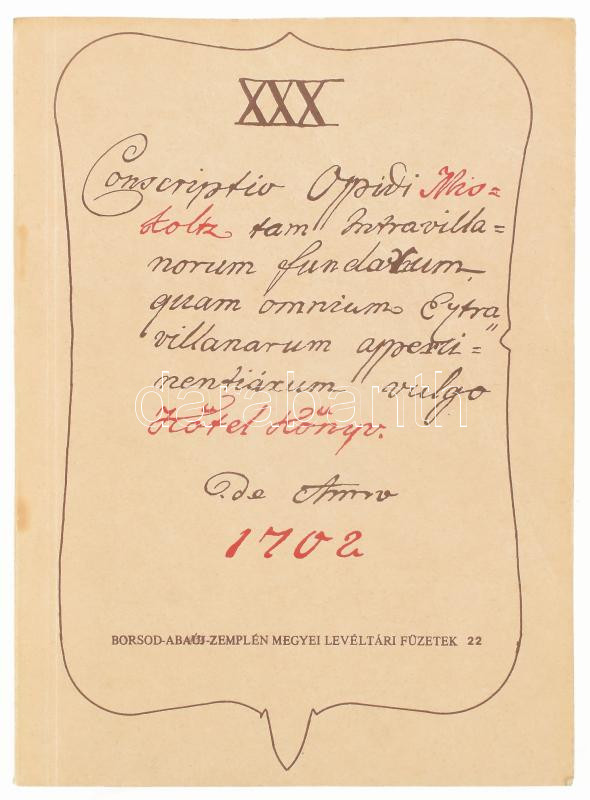 XXX
Conscriptio Opidi Mis=
koltz tam Intravilla=
norum fundorum
quam omnium Extra
villanarum apperti=
nentiarum vulgo
darabanth
Kötel Könyv.
de Anno
1702
BORSOD-ABAÚJ-ZEMPLÉN MEGYEI LEVÉLTÁRI FÜZETEK 22